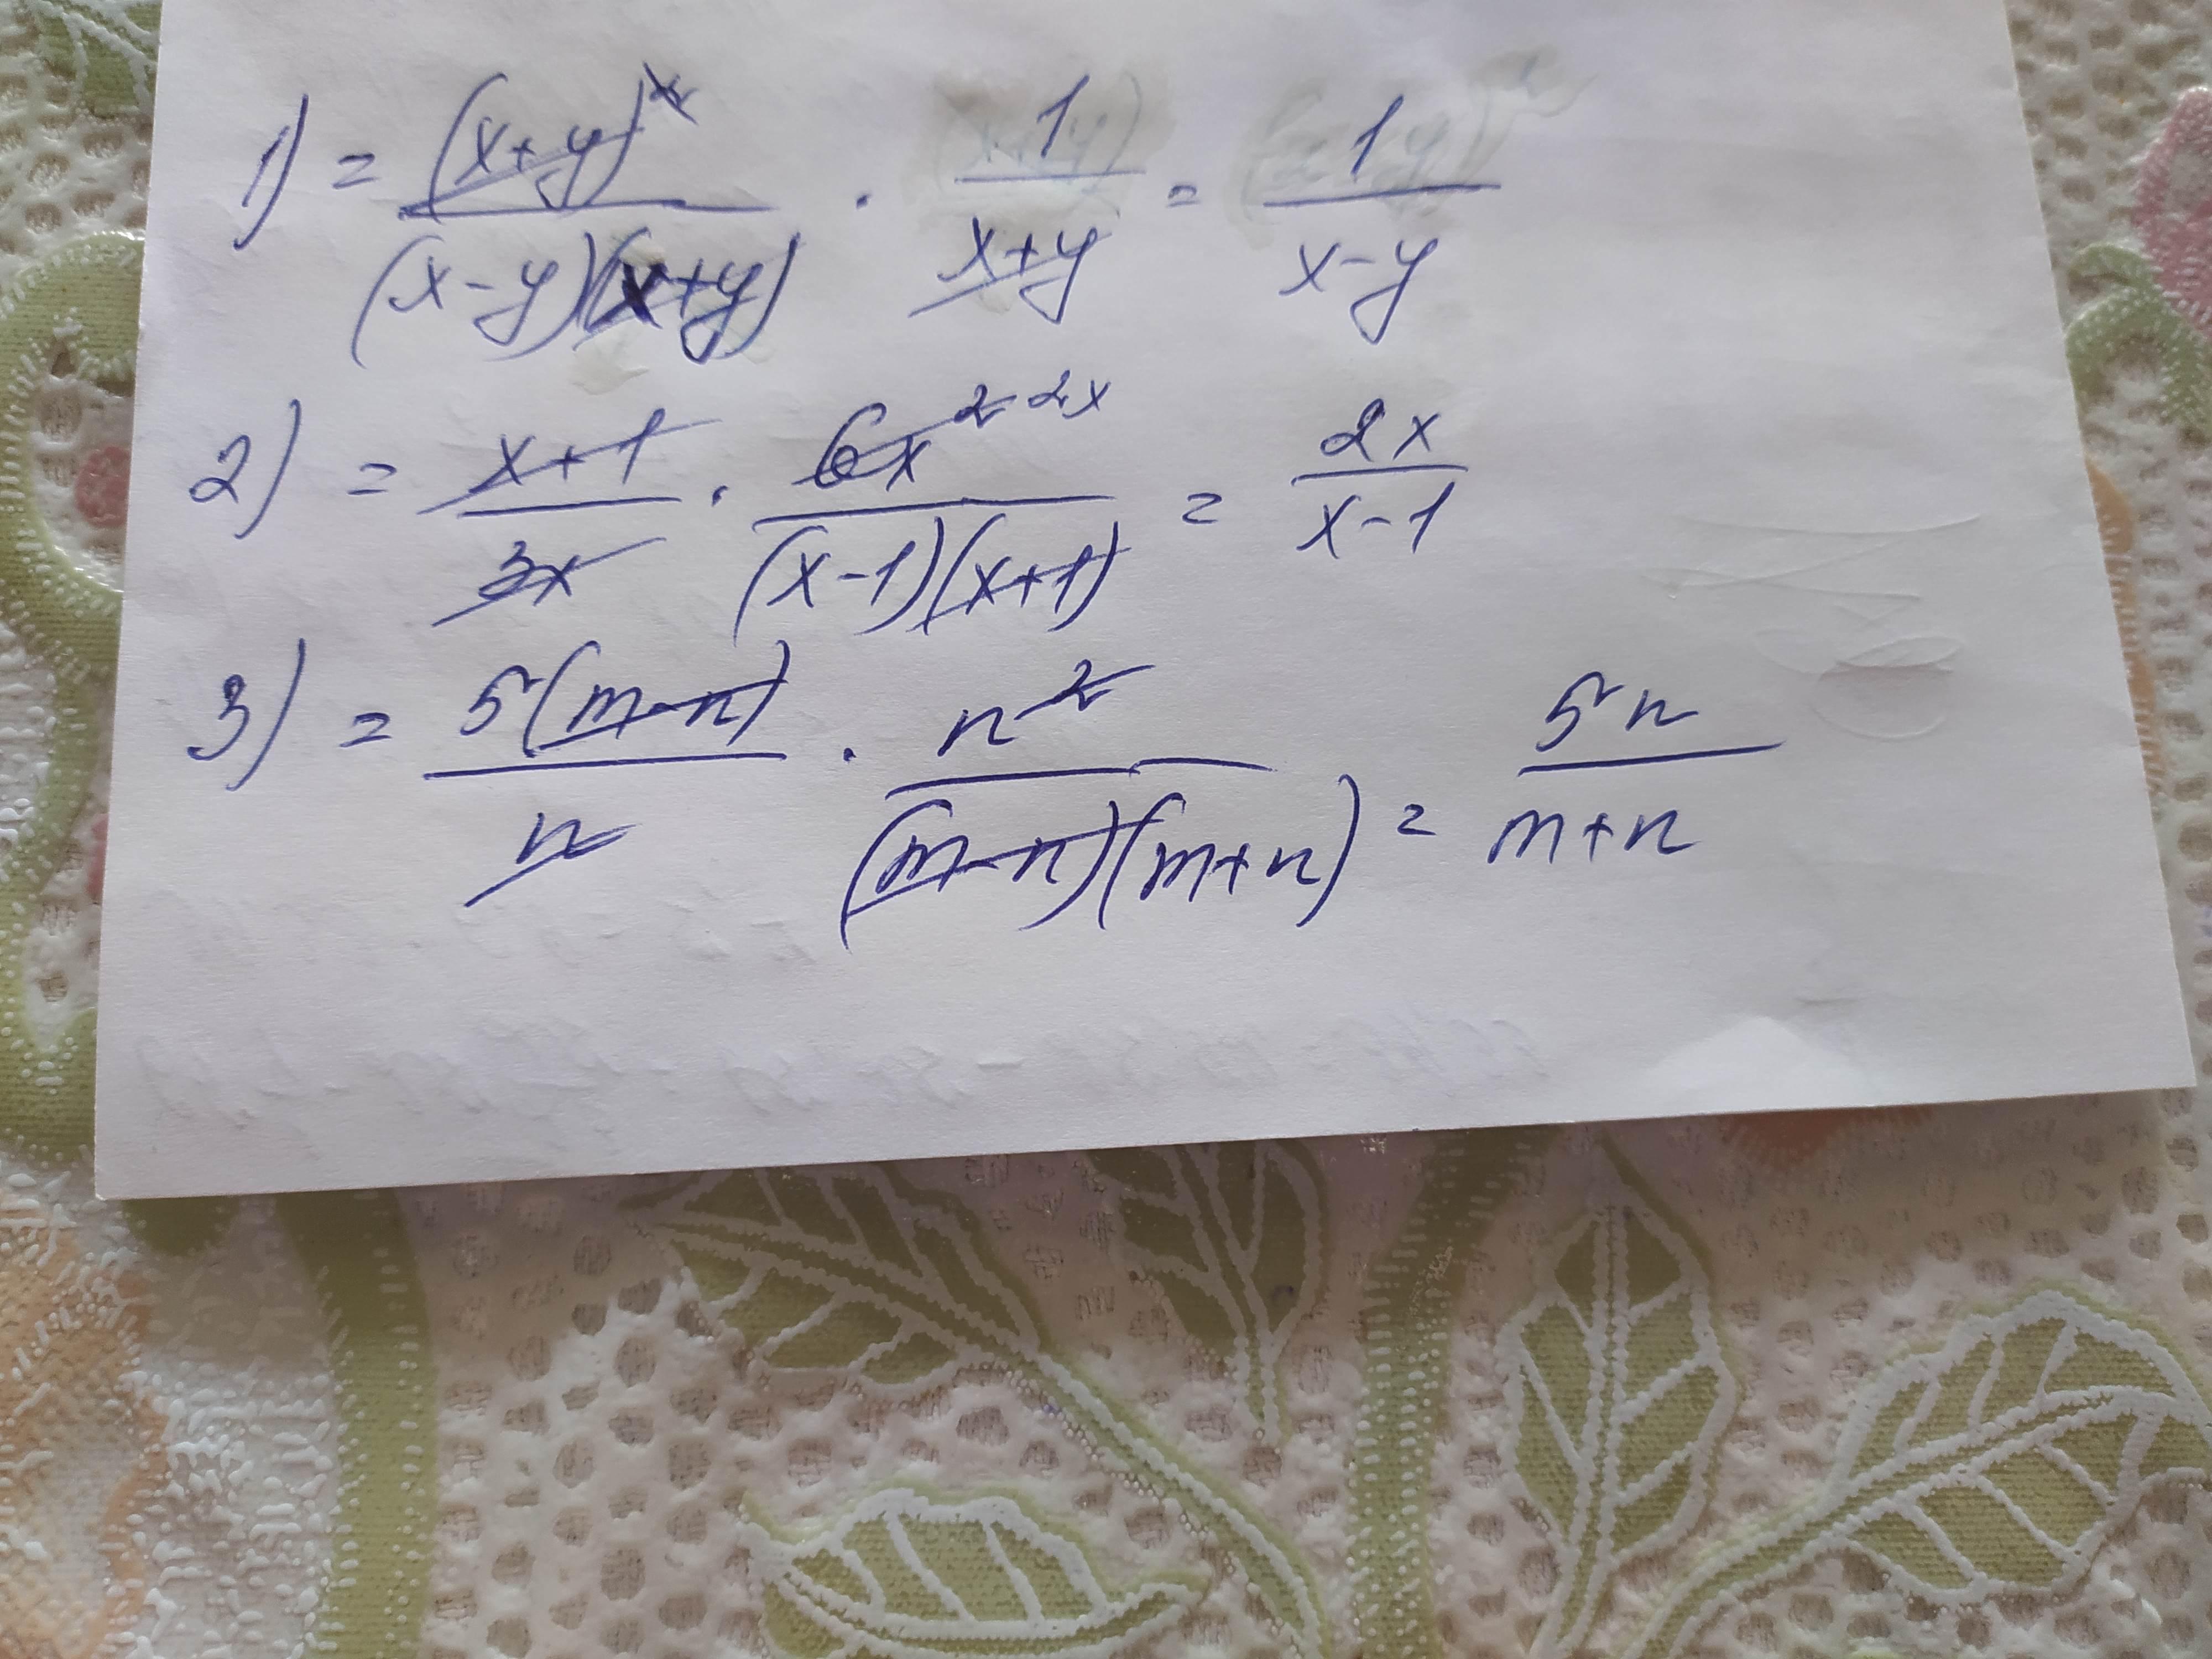 1) = (x+y)² / (x-y)(x+y) · 1 / x+y = 1 / x-y
2) = x+1 / 3x · 6x² 2x / (x-1)(x+1) = 2x / x-1
3) = 5(m-n) / n · n² / (m-n)(m+n) = 5n / m+n